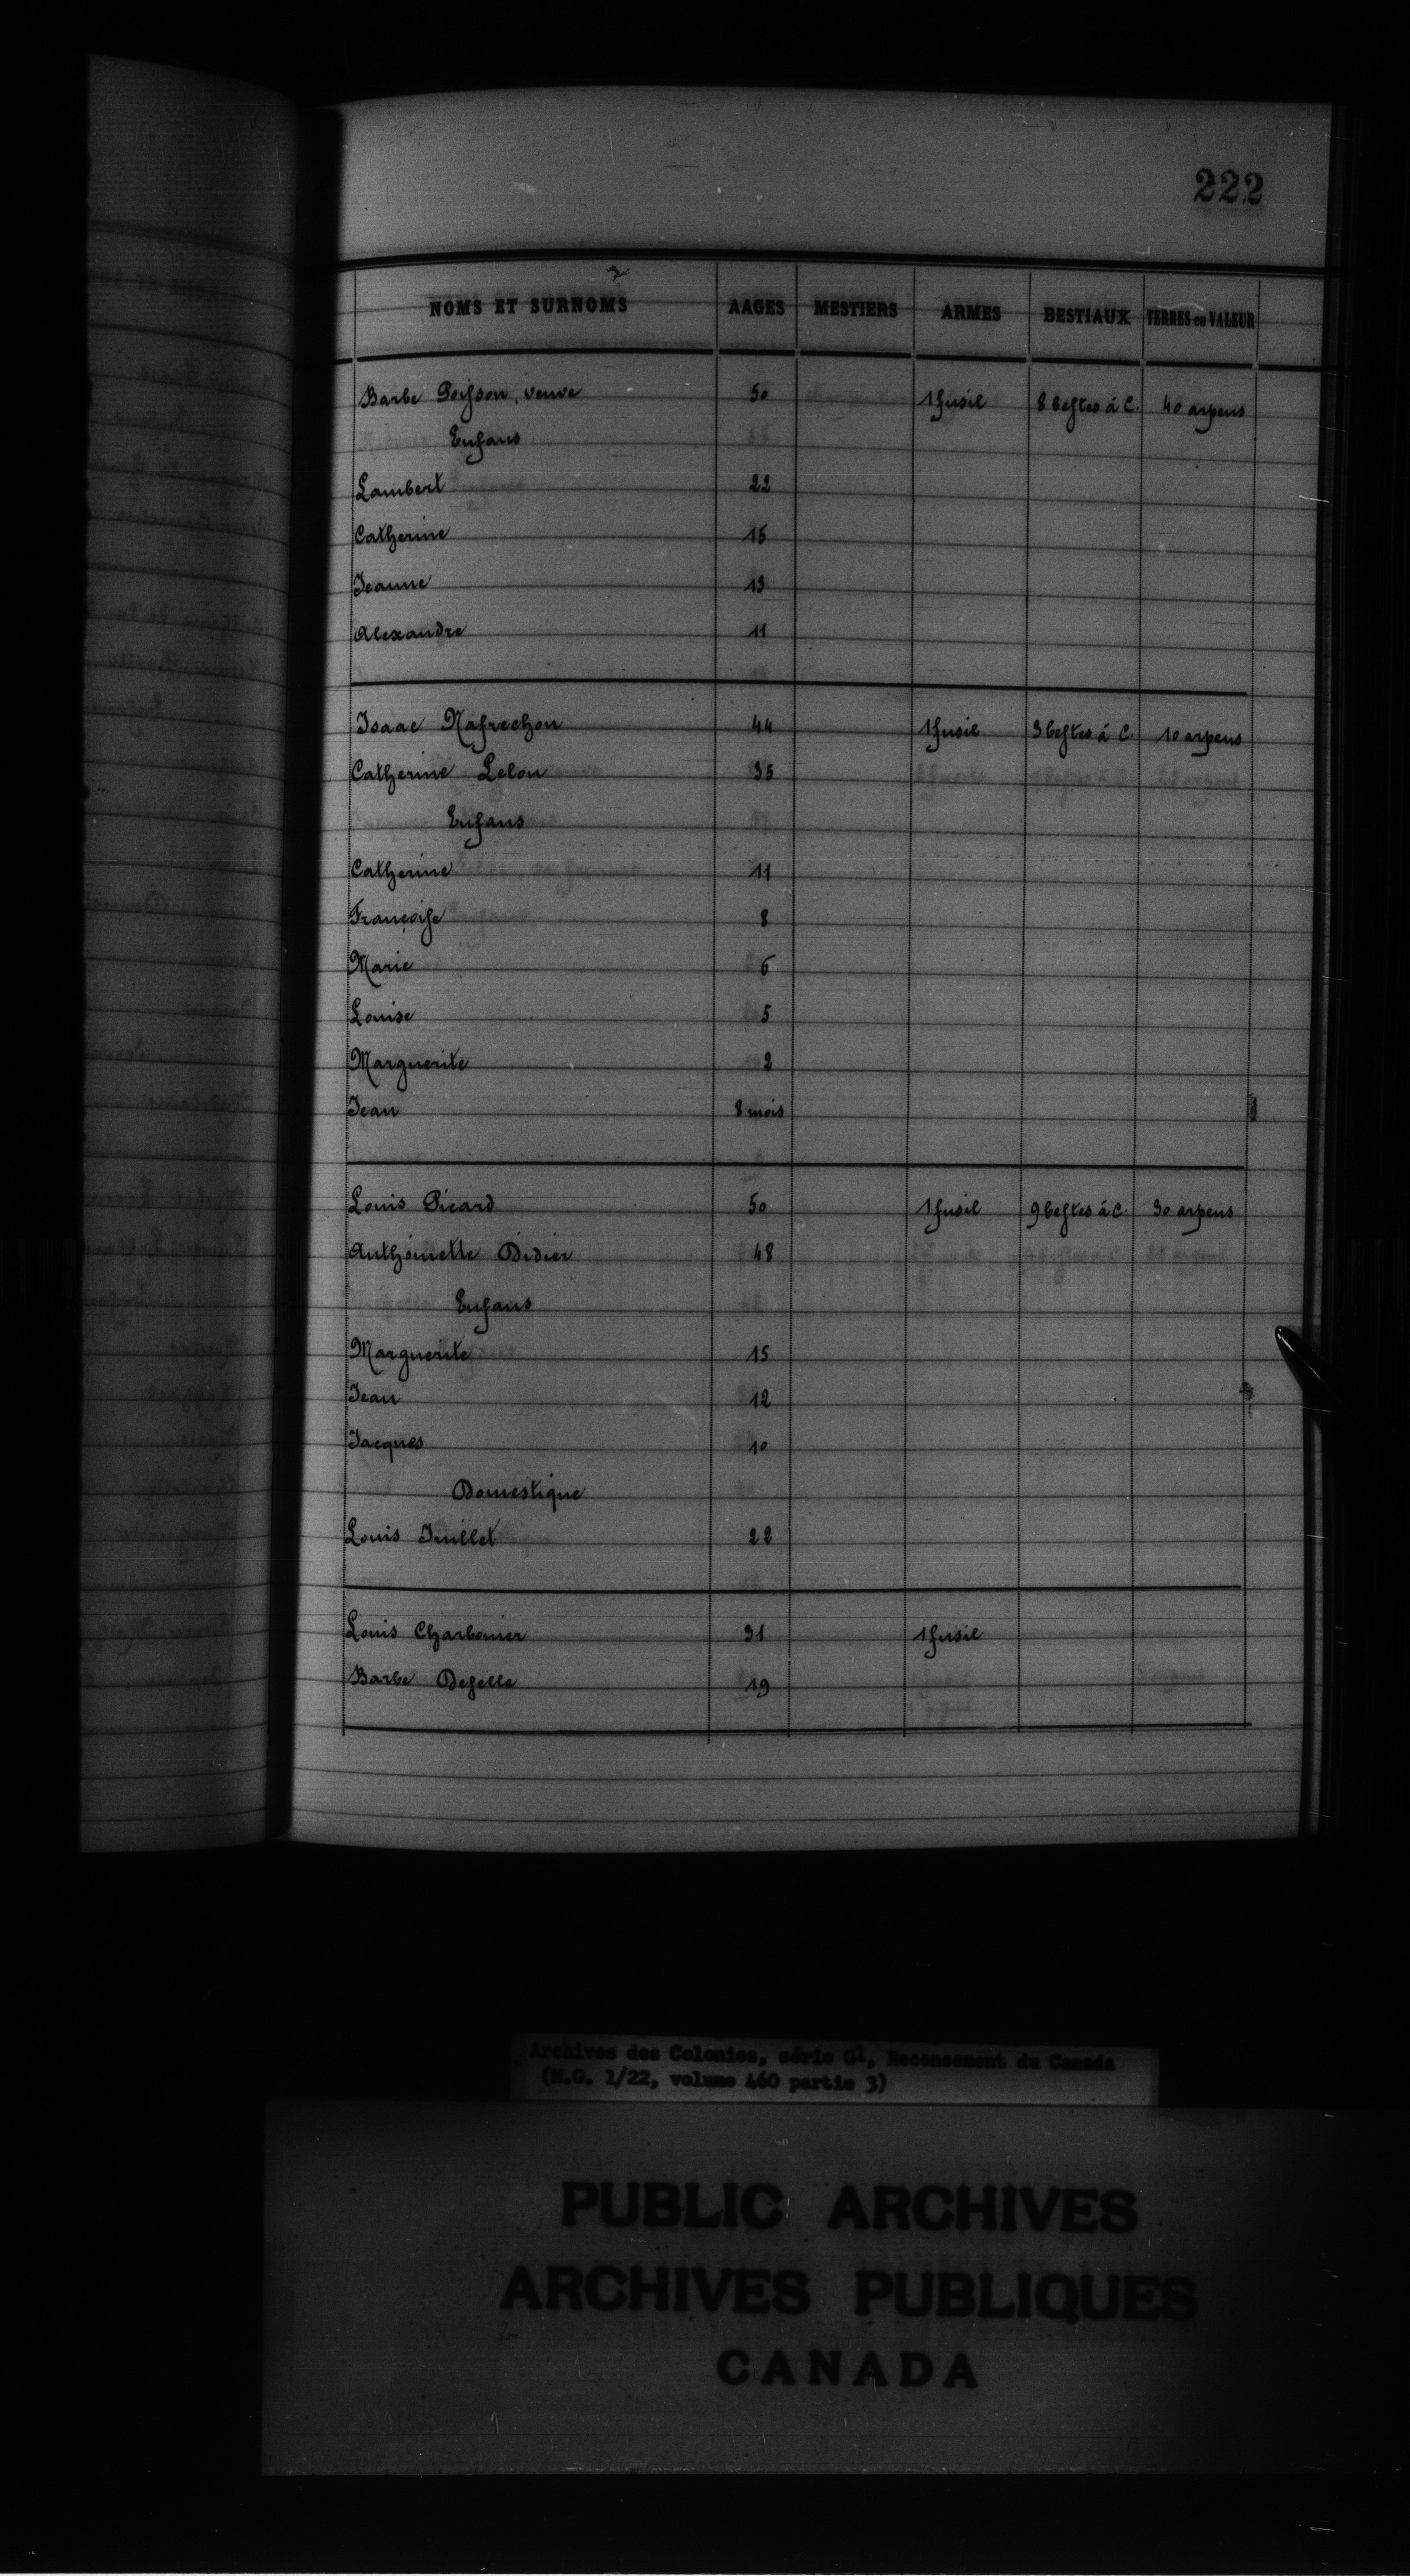 222
NOMS ET SURNOMS AAGES MESTIERS ARMES BESTIAUX TERRES en VALEUR
Barbe Poisson, veuve 50 1 fusil 8 bestes à C. 40 arpens
Enfans
Lambert 22
Catherine 15
Jeanne 13
Alexandre 11
Isaac Nafrechon 44 1 fusil 3 bestes à C. 10 arpens
Catherine Lelou 35
Enfans
Catherine 11
Françoise 8
Marie 6
Louise 5
Marguerite 2
Jean 8 mois
Louis Picard 50 1 fusil 9 bestes à C. 30 arpens
Anthoinette Didier 48
Enfans
Marguerite 15
Jean 12
Jacques 10
Domestique
Louis Juillet 22
Louis Charbonier 31 1 fusil
Barbe Deselle 19
Archives des Colonies, série G1, Recensement du Canada
(M.G. 1/22, volume 460 partie 3)
PUBLIC ARCHIVES
ARCHIVES PUBLIQUES
CANADA